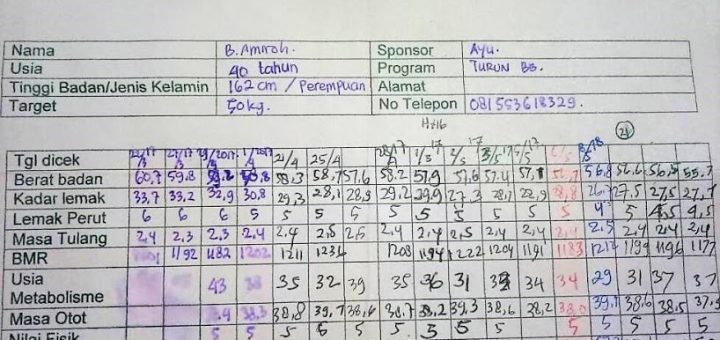 Nama B. Amroh. Sponsor Ayu.
Usia 40 tahun Program TURUN BB.
Tinggi Badan/Jenis Kelamin 162 cm / Perempuan Alamat
Target 50kg. No Telepon 081553618329.
21
Tgl dicek 21/4 25/4
Berat badan 60,7 59,8 58,3 58,7 57,6 58.2 57,9 57,6 57,4 57,1 56,8 56,6 56,5 55,7
Kadar lemak 33,7 33,2 32,9 30,8 29,3 28,1 28,9 29,2 29,9 27,3 28,1 28,9 28,8 26,7 27,5 27,5 27,1
Lemak Perut 6 6 6 5 5 5 5 5 5 5 5 5 5 4 5 4,5 4,5
Masa Tulang 2,4 2,3 2,3 2,4 2,4 2,5 2,5 2,4 2,4 2,5 2,4 2,4 2,4 2,5 2,4 2,4 2,4
BMR 1192 1182 1202 1211 1236 1208 1194 1222 1204 1191 1183 1217 1199 1196 1177
Usia
Metabolisme 43 38 35 32 39 35 36 31 34 34 29 31 37 37
Masa Otot 38,3 38,8 39,7 38,6 38,7 38,2 39,3 38,6 38,2 38,0 39,1 38,6 38,5 37,9
Nilai Fisik 5 5 5 6 5 5 5 5 5 5 5 5 5